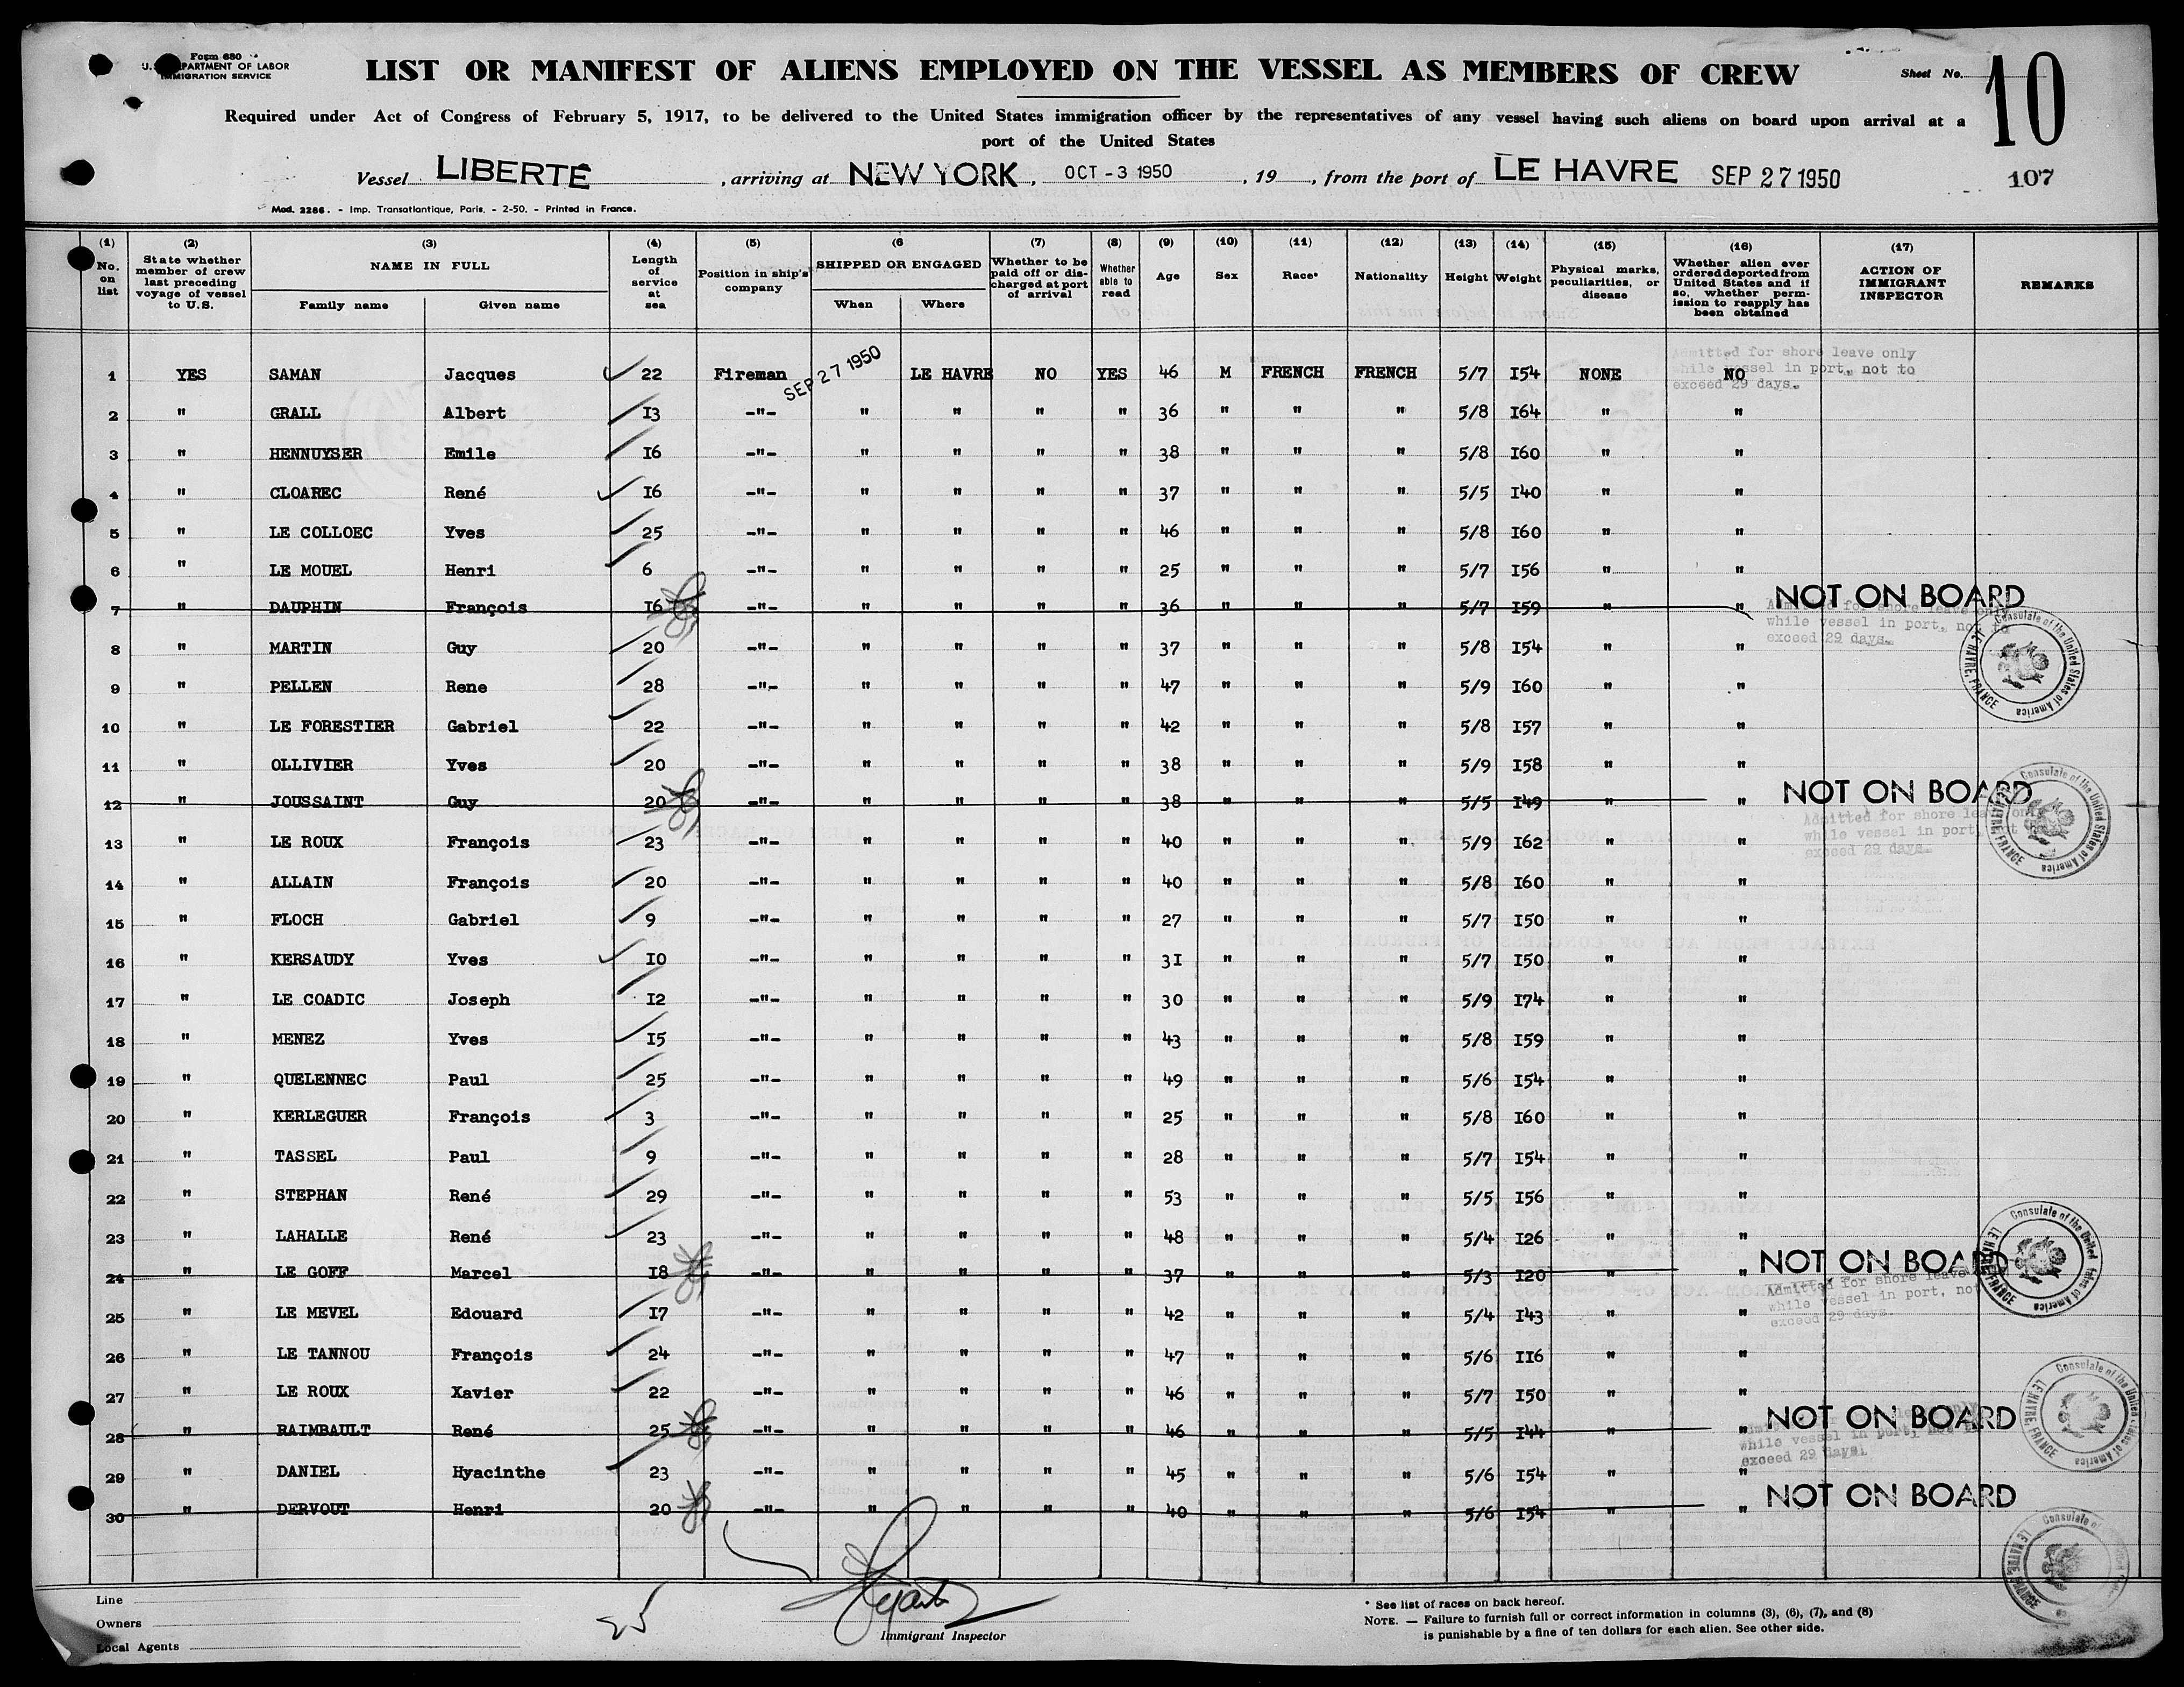 Form 680
U.S. DEPARTMENT OF LABOR
IMMIGRATION SERVICE
LIST OR MANIFEST OF ALIENS EMPLOYED ON THE VESSEL AS MEMBERS OF CREW
Sheet No. 10
Required under Act of Congress of February 5, 1917, to be delivered to the United States immigration officer by the representatives of any vessel having such aliens on board upon arrival at a
port of the United States
Vessel LIBERTÉ, arriving at NEW YORK, OCT - 3 1950, 19, from the port of LE HAVRE SEP 27 1950
107
Mod. 2286. - Imp. Transatlantique, Paris. - 2-50. - Printed in France.
(1) No. on list (2) State whether member of crew last preceding voyage of vessel to U.S. (3) NAME IN FULL Family name Given name (4) Length of service at sea (5) Position in ship's company (6 SHIPPED OR ENGAGED When Where (7) Whether to be paid off or discharged at port of arrival (8) Whether able to read (9) Age (10) Sex (11) Race* (12) Nationality (13) Height (14) Weight (15) Physical marks, peculiarities, or disease (16) Whether alien ever ordered deported from United States and if so, whether permission to reapply has been obtained (17) ACTION OF IMMIGRANT INSPECTOR REMARKS
Admitted for shore leave only
while vessel in port, not to
exceed 29 days.
1 YES SAMAN Jacques 22 Fireman SEP 27 1950 LE HAVRE NO YES 46 M FRENCH FRENCH 5/7 I54 NONE NO
2 " GRALL Albert I3 -"- " " " " 36 " " " 5/8 I64 " "
3 " HENNUYSER Emile I6 -"- " " " " 38 " " " 5/8 I60 " "
4 " CLOAREC René I6 -"- " " " " 37 " " " 5/5 I40 " "
5 " LE COLLOEC Yves 25 -"- " " " " 46 " " " 5/8 I60 " "
6 " LE MOUEL Henri 6 -"- " " " " 25 " " " 5/7 I56 " "
7 " DAUPHIN François I6 -"- " " " " 36 " " " 5/7 I59 " " NOT ON BOARD
Admitted for shore leave only
while vessel in port, not to
exceed 29 days.
Consulate of the United States of America LE HAVRE, FRANCE
8 " MARTIN Guy 20 -"- " " " " 37 " " " 5/8 I54 " "
9 " PELLEN Rene 28 -"- " " " " 47 " " " 5/9 I60 " "
10 " LE FORESTIER Gabriel 22 -"- " " " " 42 " " " 5/8 I57 " "
11 " OLLIVIER Yves 20 -"- " " " " 38 " " " 5/9 I58 " "
12 " JOUSSAINT Guy 20 -"- " " " " 38 " " " 5/5 I49 " " NOT ON BOARD
Admitted for shore leave only
while vessel in port, not to
exceed 29 days.
Consulate of the United States of America LE HAVRE, FRANCE
13 " LE ROUX François 23 -"- " " " " 40 " " " 5/9 I62 " "
14 " ALLAIN François 20 -"- " " " " 40 " " " 5/8 I60 " "
15 " FLOCH Gabriel 9 -"- " " " " 27 " " " 5/7 I50 " "
16 " KERSAUDY Yves I0 -"- " " " " 3I " " " 5/7 I50 " "
17 " LE COADIC Joseph I2 -"- " " " " 30 " " " 5/9 I74 " "
18 " MENEZ Yves I5 -"- " " " " 43 " " " 5/8 I59 " "
19 " QUELENNEC Paul 25 -"- " " " " 49 " " " 5/6 I54 " "
20 " KERLEGUER François 3 -"- " " " " 25 " " " 5/8 I60 " "
21 " TASSEL Paul 9 -"- " " " " 28 " " " 5/7 I54 " "
22 " STEPHAN René 29 -"- " " " " 53 " " " 5/5 I56 " "
23 " LAHALLE René 23 -"- " " " " 48 " " " 5/4 I26 " "
24 " LE GOFF Marcel I8 -"- " " " " 37 " " " 5/3 I20 " " NOT ON BOARD
Admitted for shore leave
while vessel in port, not
exceed 29 days.
Consulate of the United States of America LE HAVRE, FRANCE
25 " LE MEVEL Edouard I7 -"- " " " " 42 " " " 5/4 I43 " "
26 " LE TANNOU François 24 -"- " " " " 47 " " " 5/6 II6 " "
27 " LE ROUX Xavier 22 -"- " " " " 46 " " " 5/7 I50 " "
28 " RAIMBAULT René 25 -"- " " " " 46 " " " 5/5 I44 " " NOT ON BOARD
while vessel in port, not to
exceed 29 days.
Consulate of the United States of America LE HAVRE, FRANCE
29 " DANIEL Hyacinthe 23 -"- " " " " 45 " " " 5/6 I54 " "
30 " DERVOUT Henri 20 -"- " " " " 40 " " " 5/6 I54 " " NOT ON BOARD
Consulate of LE HAVRE, FRANCE
Line
Owners
Local Agents
25
Immigrant Inspector
* See list of races on back hereof.
NOTE. — Failure to furnish full or correct information in columns (3), (6), (7), and (8)
is punishable by a fine of ten dollars for each alien. See other side.